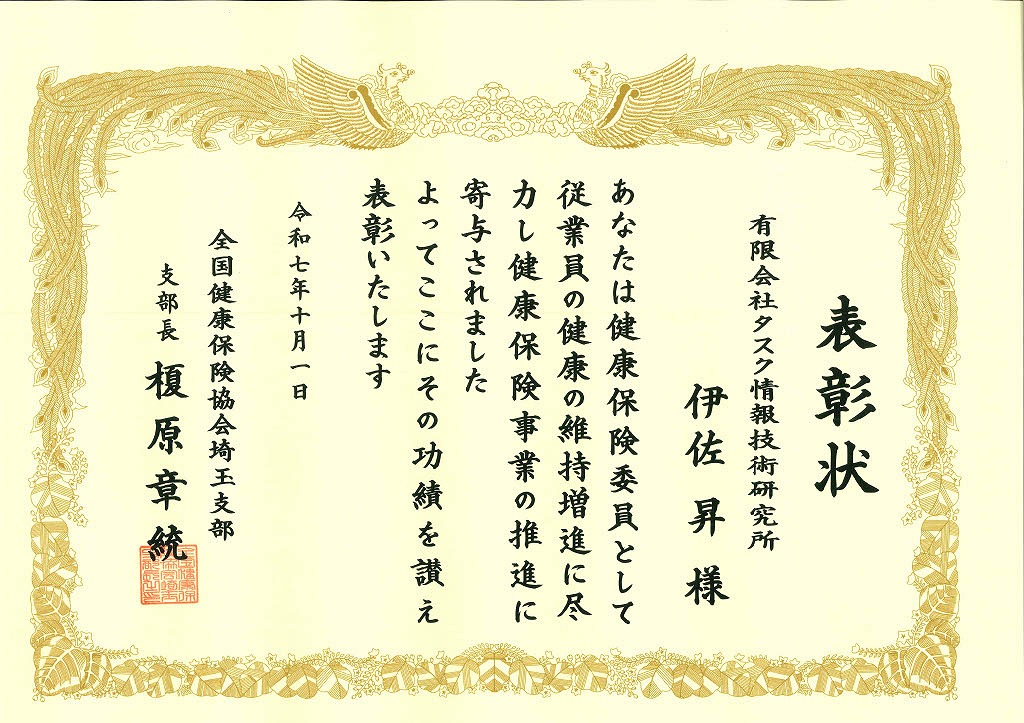 表彰状
有限会社タスク情報技術研究所
伊佐昇様
あなたは健康保険委員として
従業員の健康の維持増進に尽
力し健康保険事業の推進に
寄与されました
よってここにその功績を讃え
表彰いたします
令和七年十月一日
全国健康保険協会埼玉支部
支部長 榎原章統